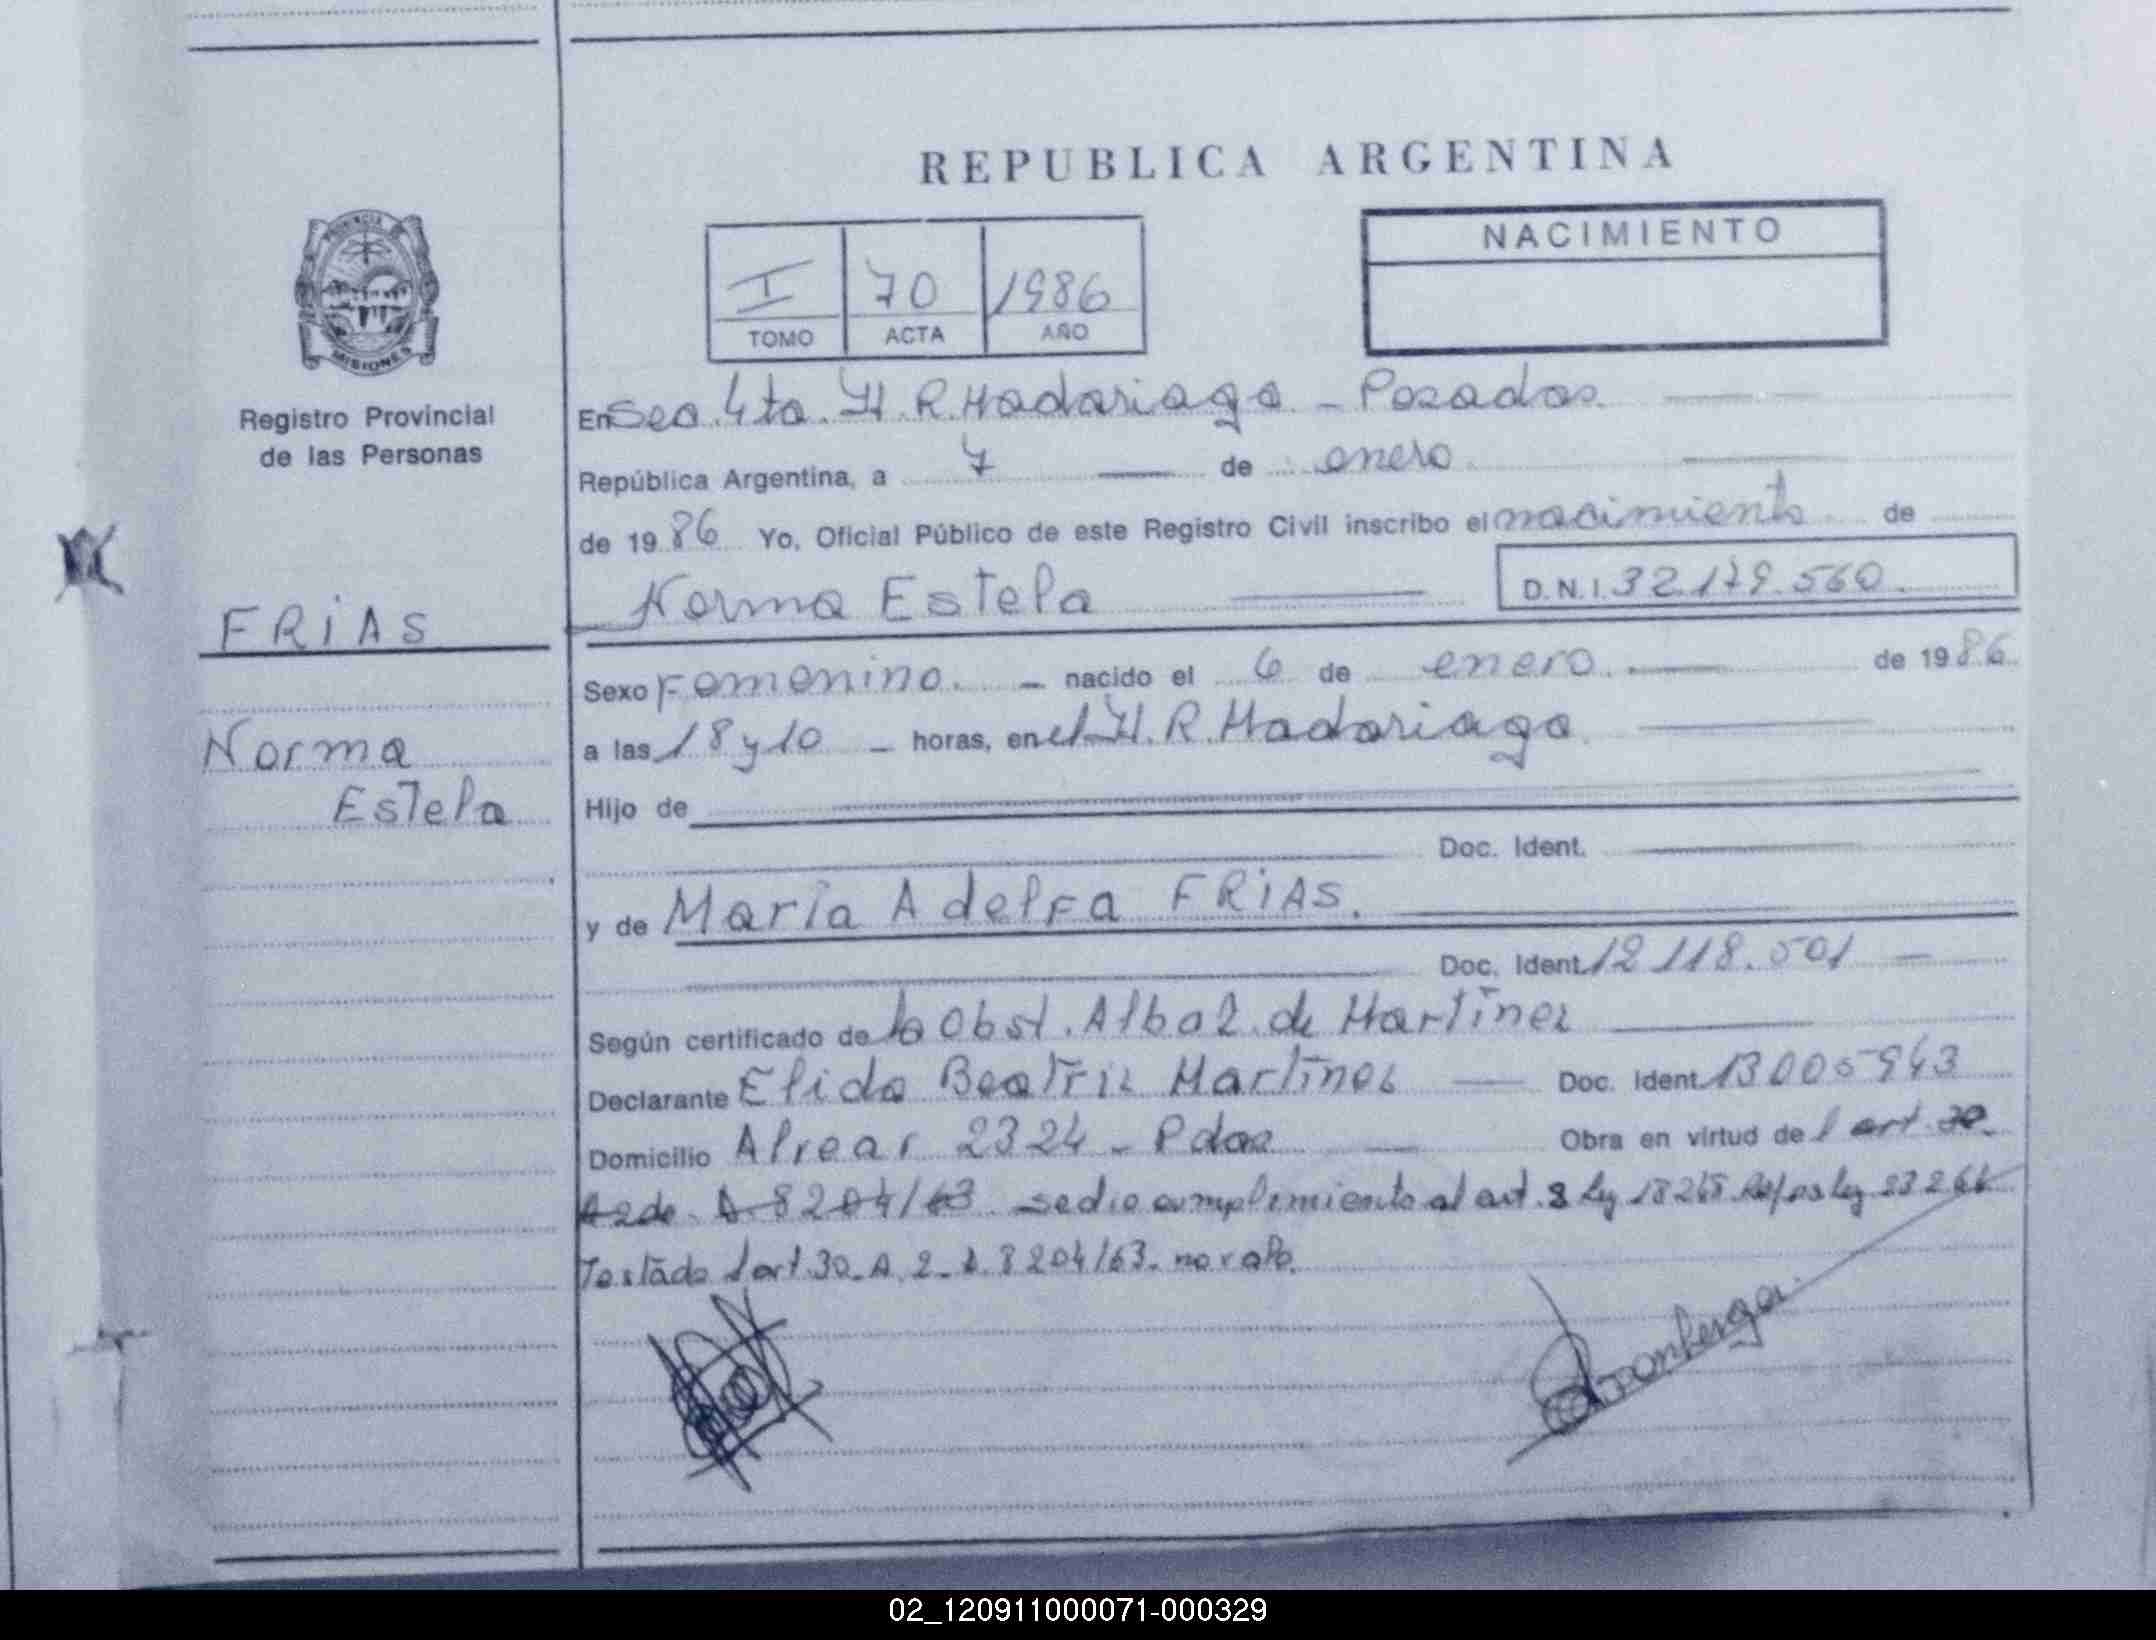 REPUBLICA ARGENTINA
NACIMIENTO
I 70 1986
TOMO ACTA AÑO
PROVINCIA DE
MISIONES
Registro Provincial
de las Personas
FRIAS
Norma
Estela
En Sec. 4ta. H. R. Madariaga - Posadas
República Argentina, a 7 de enero
de 1986 Yo, Oficial Público de este Registro Civil inscribo el nacimiento de
Norma Estela D.N.I. 32.179.560
Sexo Femenino. nacido el 6 de enero. de 1986
a las 18 y 10 horas, en el H. R. Madariaga
Hijo de
Doc. Ident.
y de María Adelfa FRIAS.
Doc. Ident. 12.118.501
Según certificado de la Obst. Alba Z. de Martínez
Declarante Elida Beatríz Martínez Doc. Ident. 13005943
Domicilio Alvear 2324 - Pdas Obra en virtud del art. 30
A 2 de D. 8204/63 se dio cumplimiento al art. 2 ley 18248 ley 23264
Testado l art 30. A. 2. D. 8204/63. no vale.
02_120911000071-000329